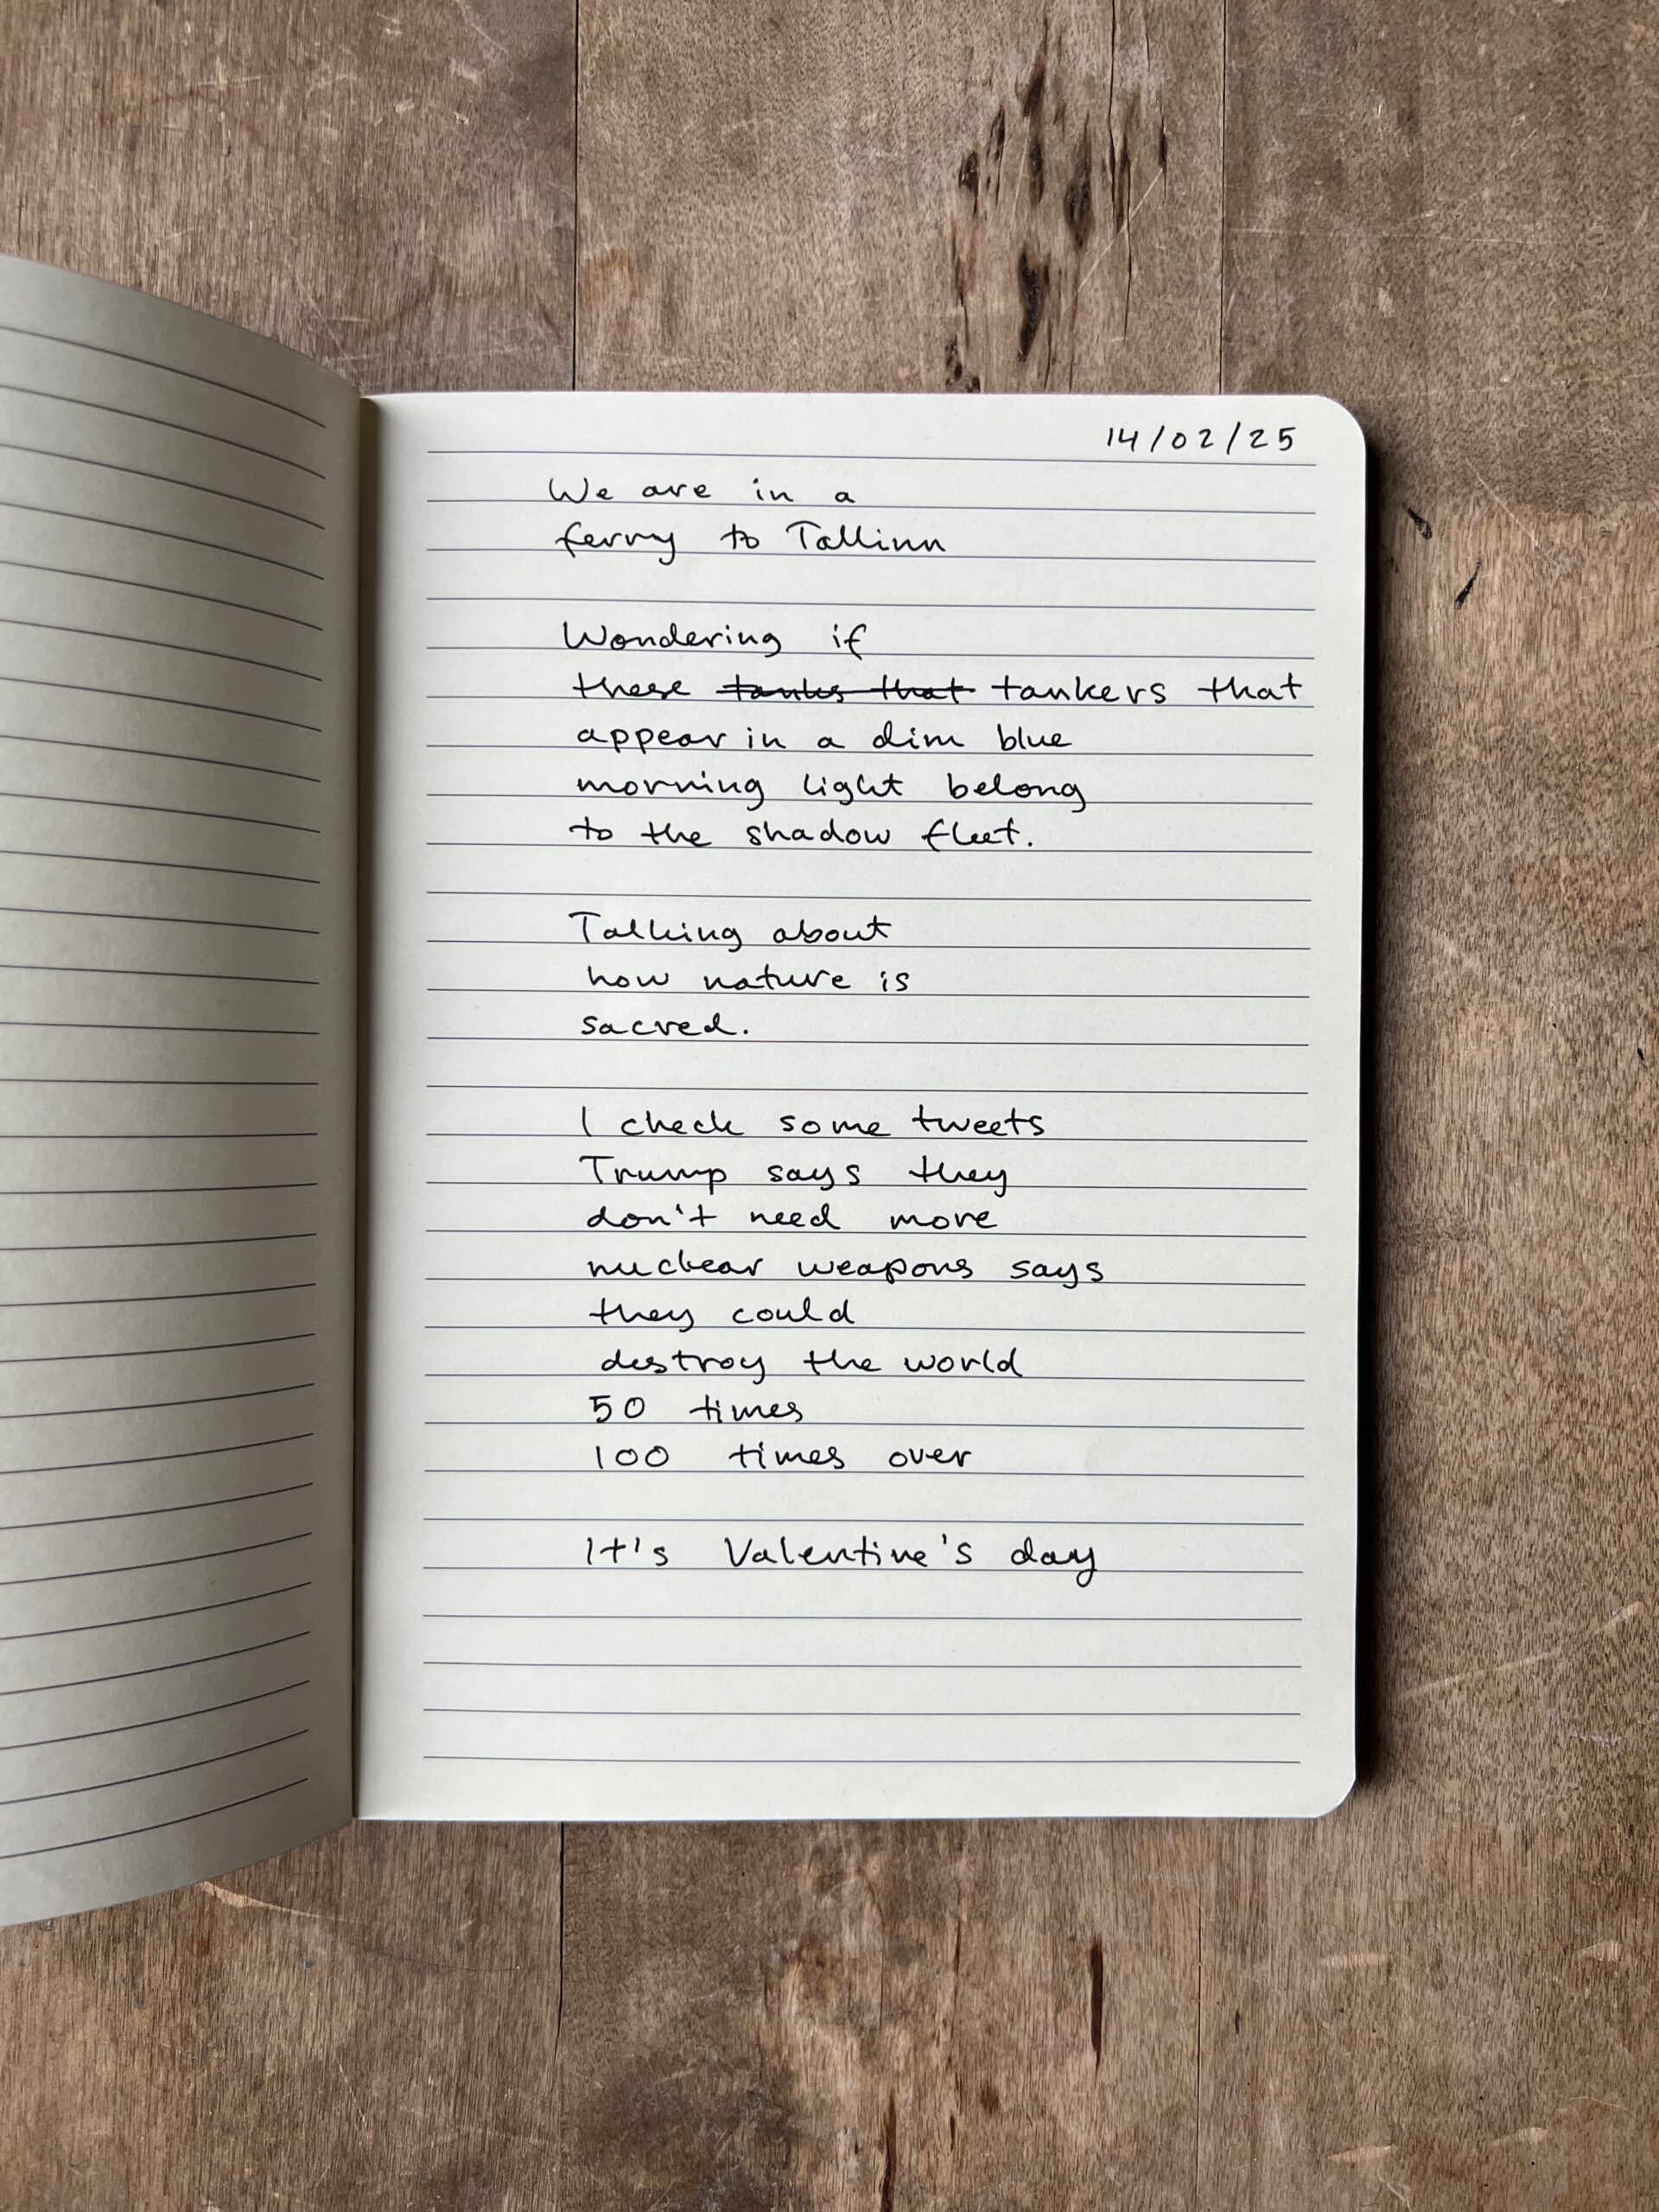 14/02/25
We are in a
ferry to Tallinn
Wondering if
these tanks that tankers that
appear in a dim blue
morning light belong
to the shadow fleet.
Talking about
how nature is
sacred.
I check some tweets
Trump says they
don't need more
nuclear weapons says
they could
destroy the world
50 times
100 times over
It's Valentine's day